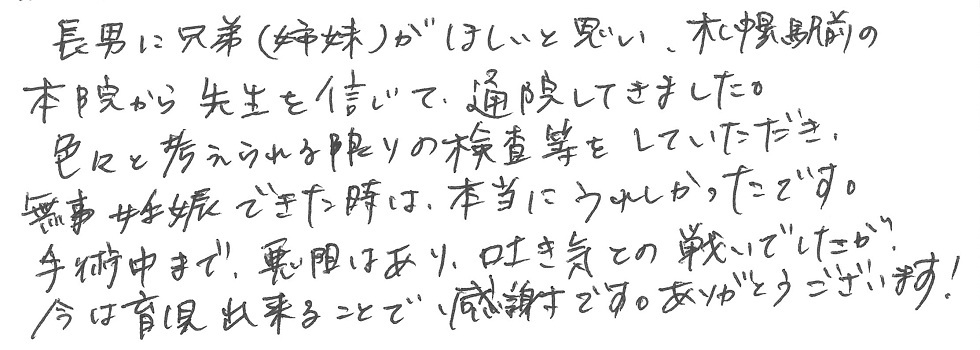 長男に兄弟(姉妹)がほしいと思い、札幌駅前の
本院から先生を信じて、通院してきました。
色々と考えられる限りの検査等をしていただき、
無事妊娠できた時は、本当にうれしかったです。
手術中まで、悪阻はあり、吐き気との戦いでしたが、
今は育児出来ることで、感謝です。ありがとうございます!